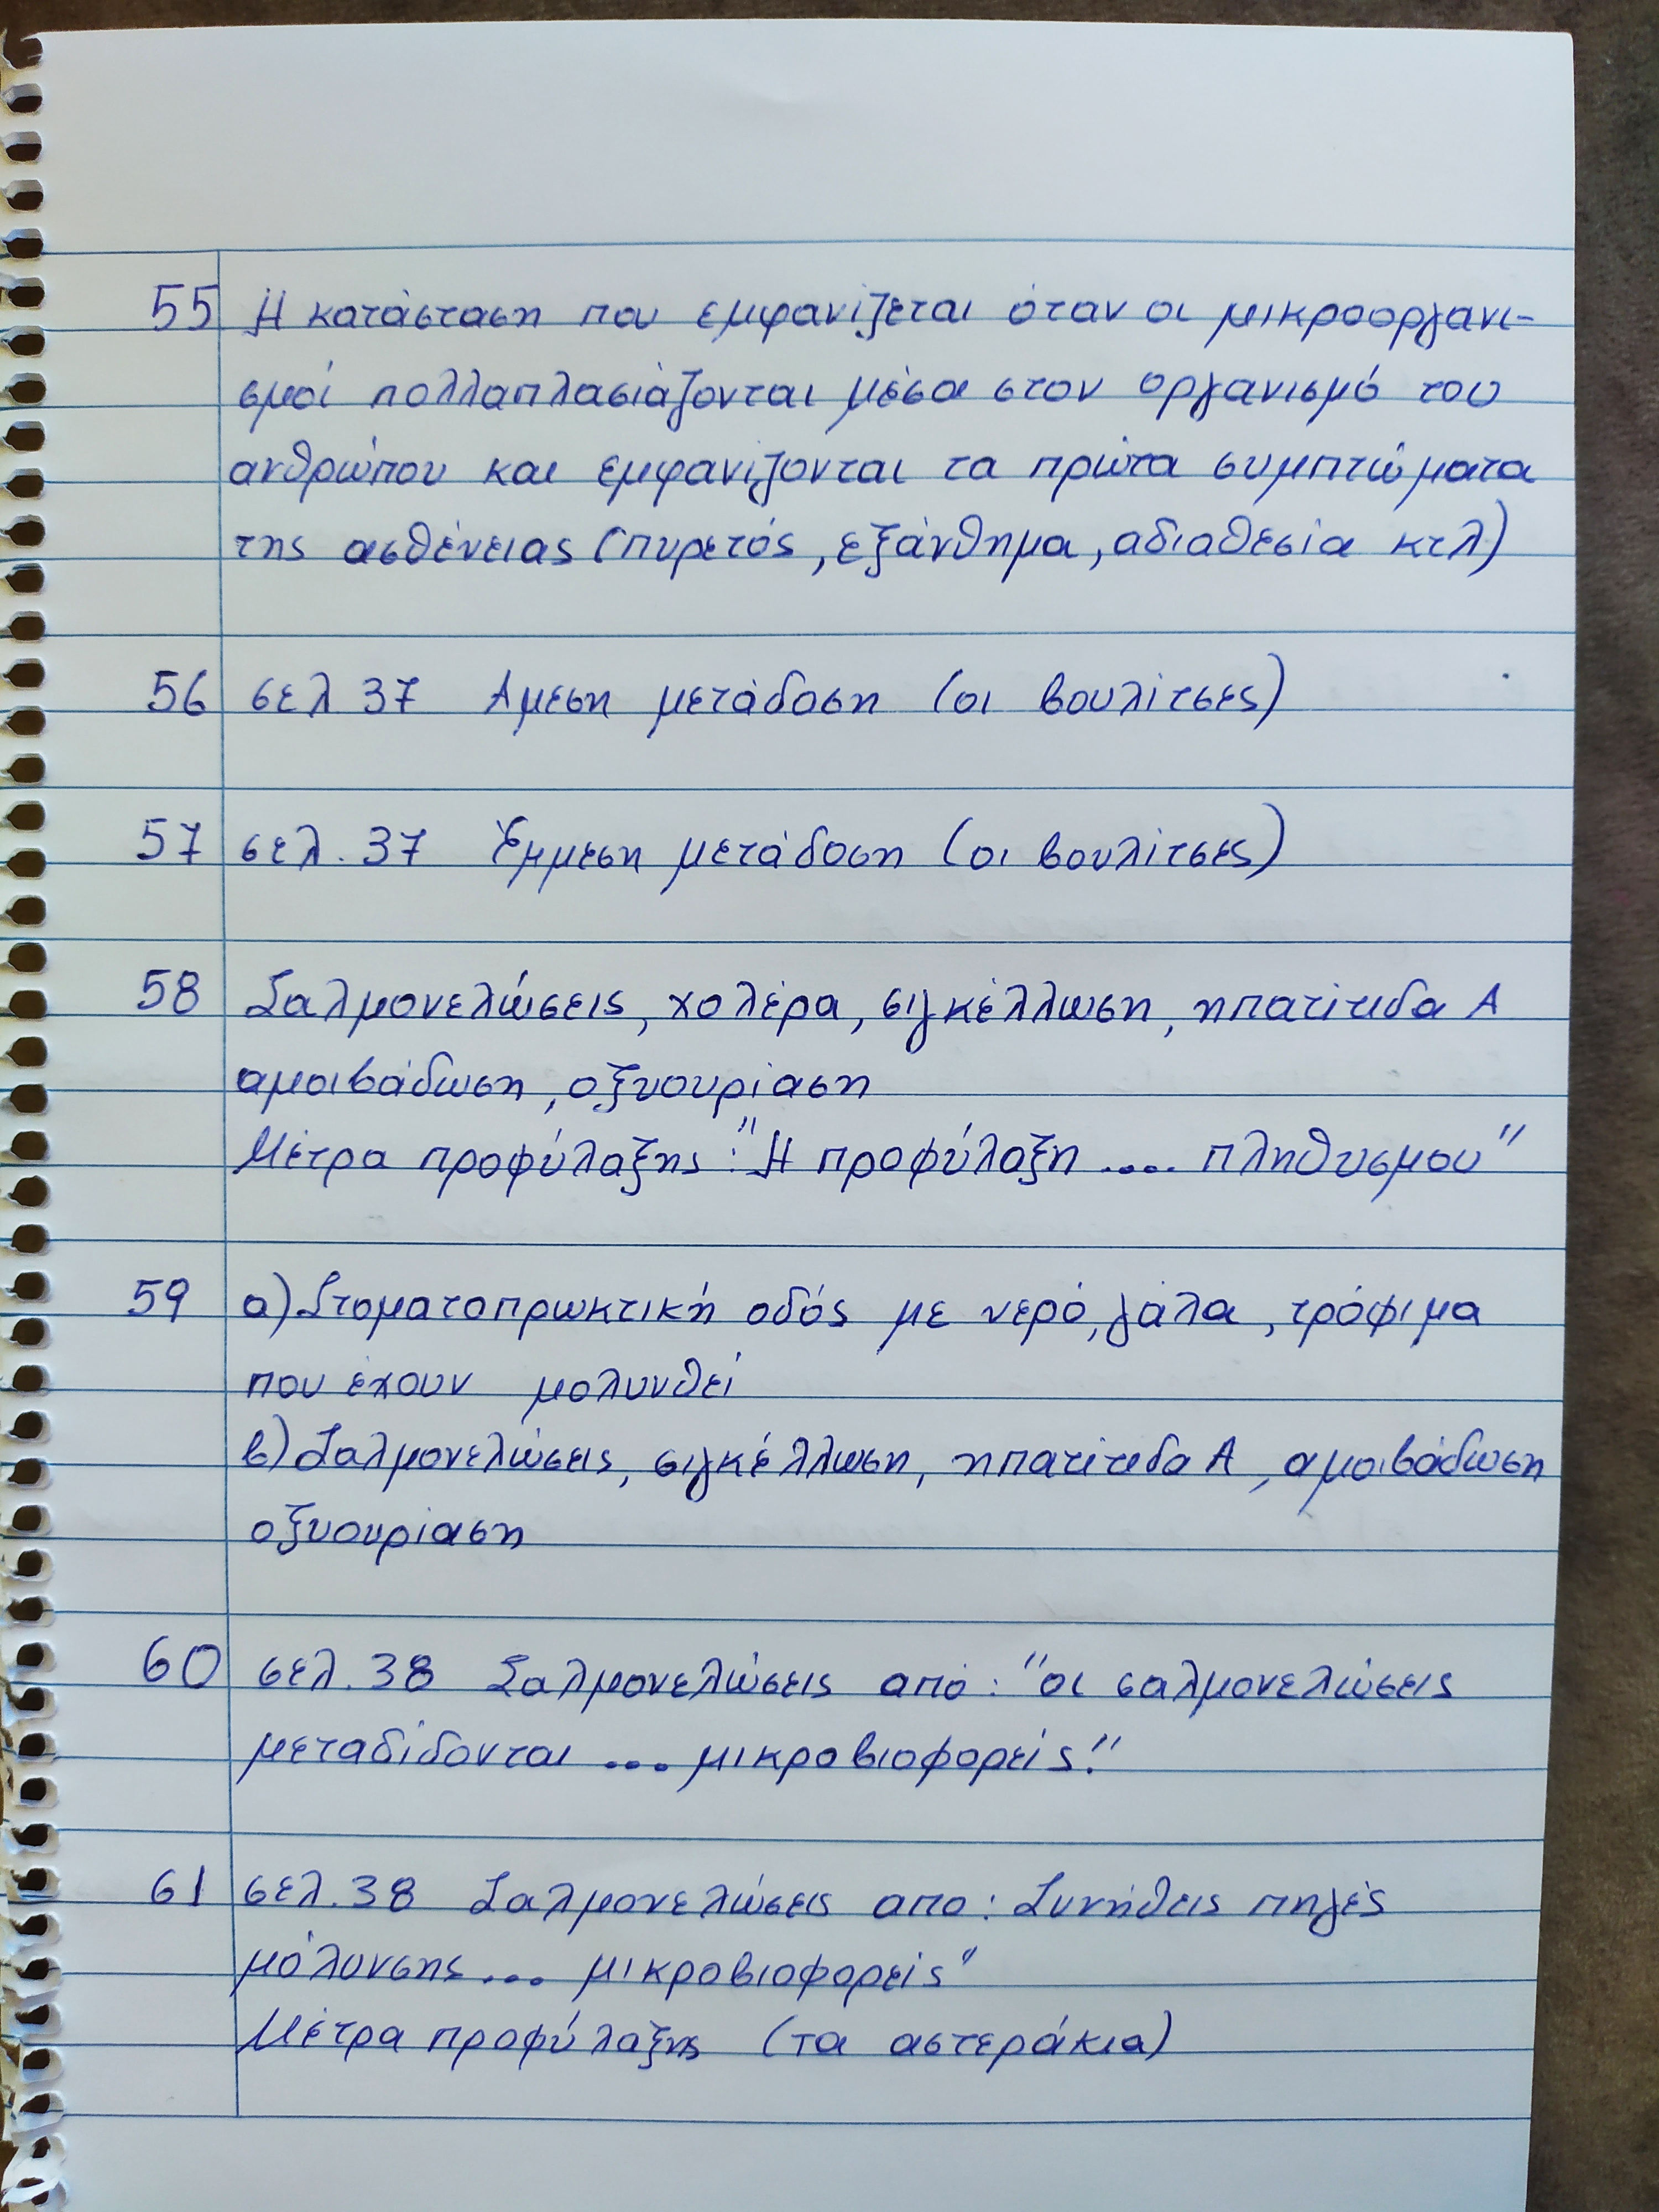 55 Η κατάσταση που εμφανίζεται όταν οι μικροοργανι-
σμοί πολλαπλασιάζονται μέσα στον οργανισμό του
ανθρώπου και εμφανίζονται τα πρώτα συμπτώματα
της ασθένειας (πυρετός, εξάνθημα, αδιαθεσία κτλ)
56 σελ 37 Αμεση μετάδοση (οι βουλίτσες)
57 σελ. 37 Έμμεση μετάδοση (οι βουλίτσες)
58 Σαλμονελώσεις, χολέρα, σιγκέλλωση, ηπατίτιδα Α
αμοιβάδωση, οξυουρίαση
Μέτρα προφύλαξης: "Η προφύλαξη .... πληθυσμου"
59 α) Στοματοπρωκτική οδός με νερό, γάλα, τρόφιμα
που έχουν μολυνθεί
β) Σαλμονελώσεις, σιγκέλλωση, ηπατίτιδα Α, αμοιβάδωση
οξυουρίαση
60 σελ. 38 Σαλμονελώσεις από: "οι σαλμονελώσεις
μεταδίδονται ... μικροβιοφορείς."
61 σελ. 38 Σαλμονελώσεις απο: Συνήθεις πηγές
μόλυνσης ... μικροβιοφορείς"
Μέτρα προφύλαξης (τα αστεράκια)